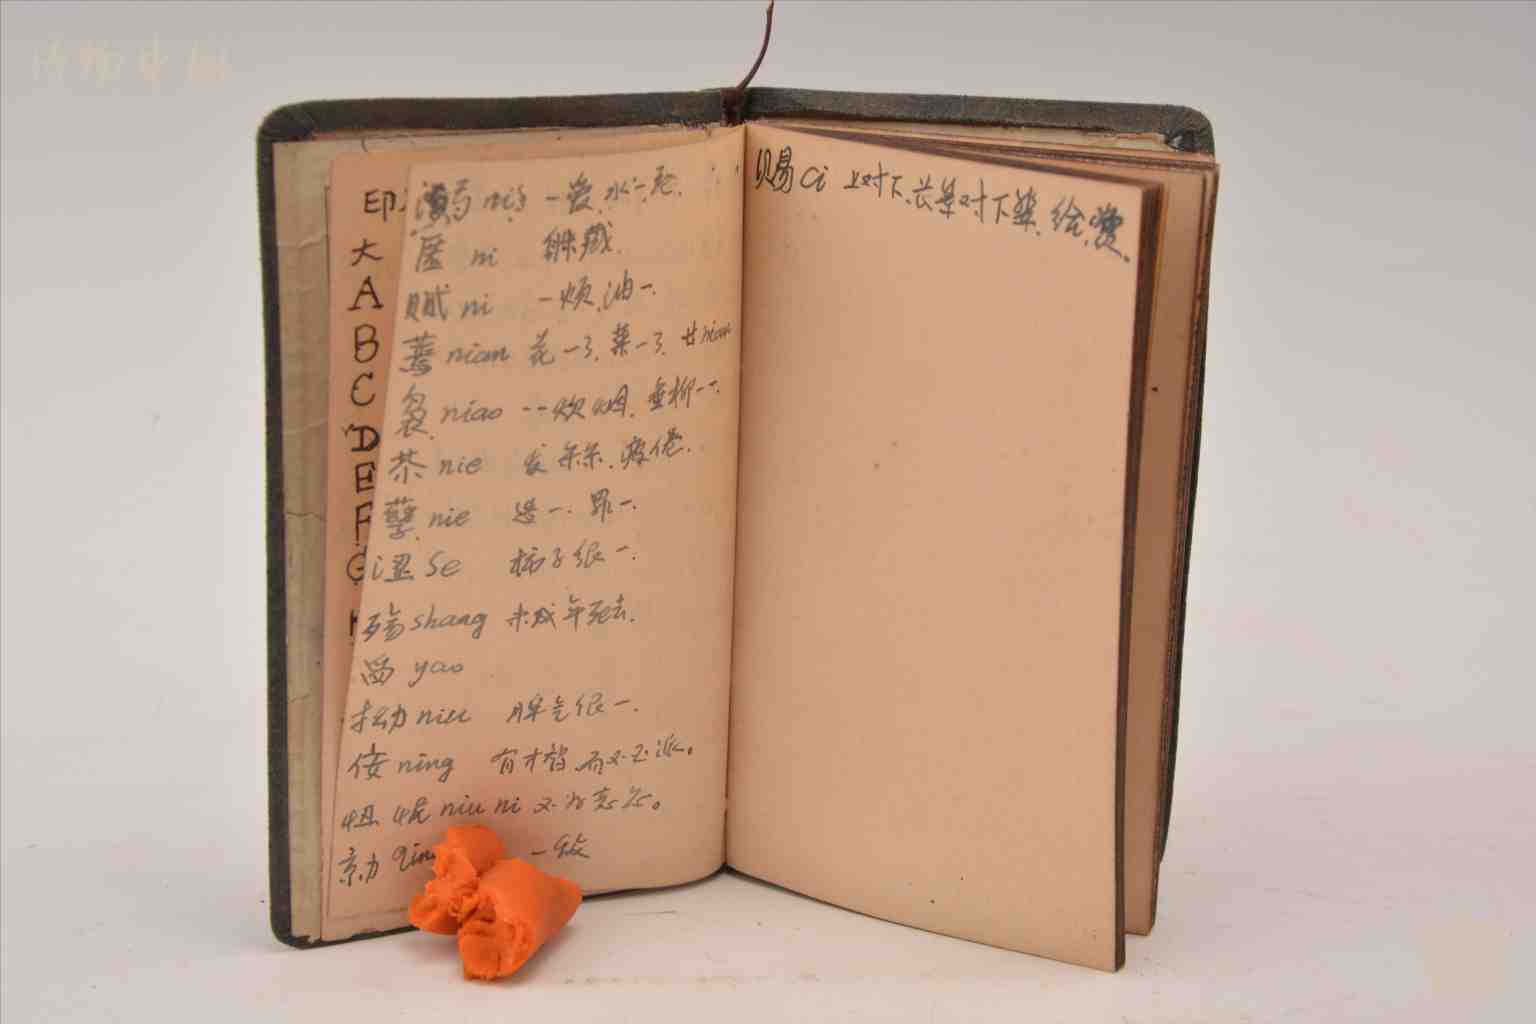 印
大
A
B
C
D
E
F
G
溺 ni 一爱.水一.死.
匿 ni 躲藏.
腻 ni 一烦.油一.
蔫 nian 花一了.菜一了. 廿nian
袅 niao 一一炊烟.垂柳一一.
苶 nie 发苶.疲倦.
孽 nie 造一.罪一.
涩 Se 柿子很一.
殇 shang 未成年死去.
舀 yao
拗 niu 脾气很一.
佞 ning 有才智.而又不派。
忸怩 niu ni 不好意思。
勍 qin 一敌
赐 ci 上对下.长辈对下辈.给.